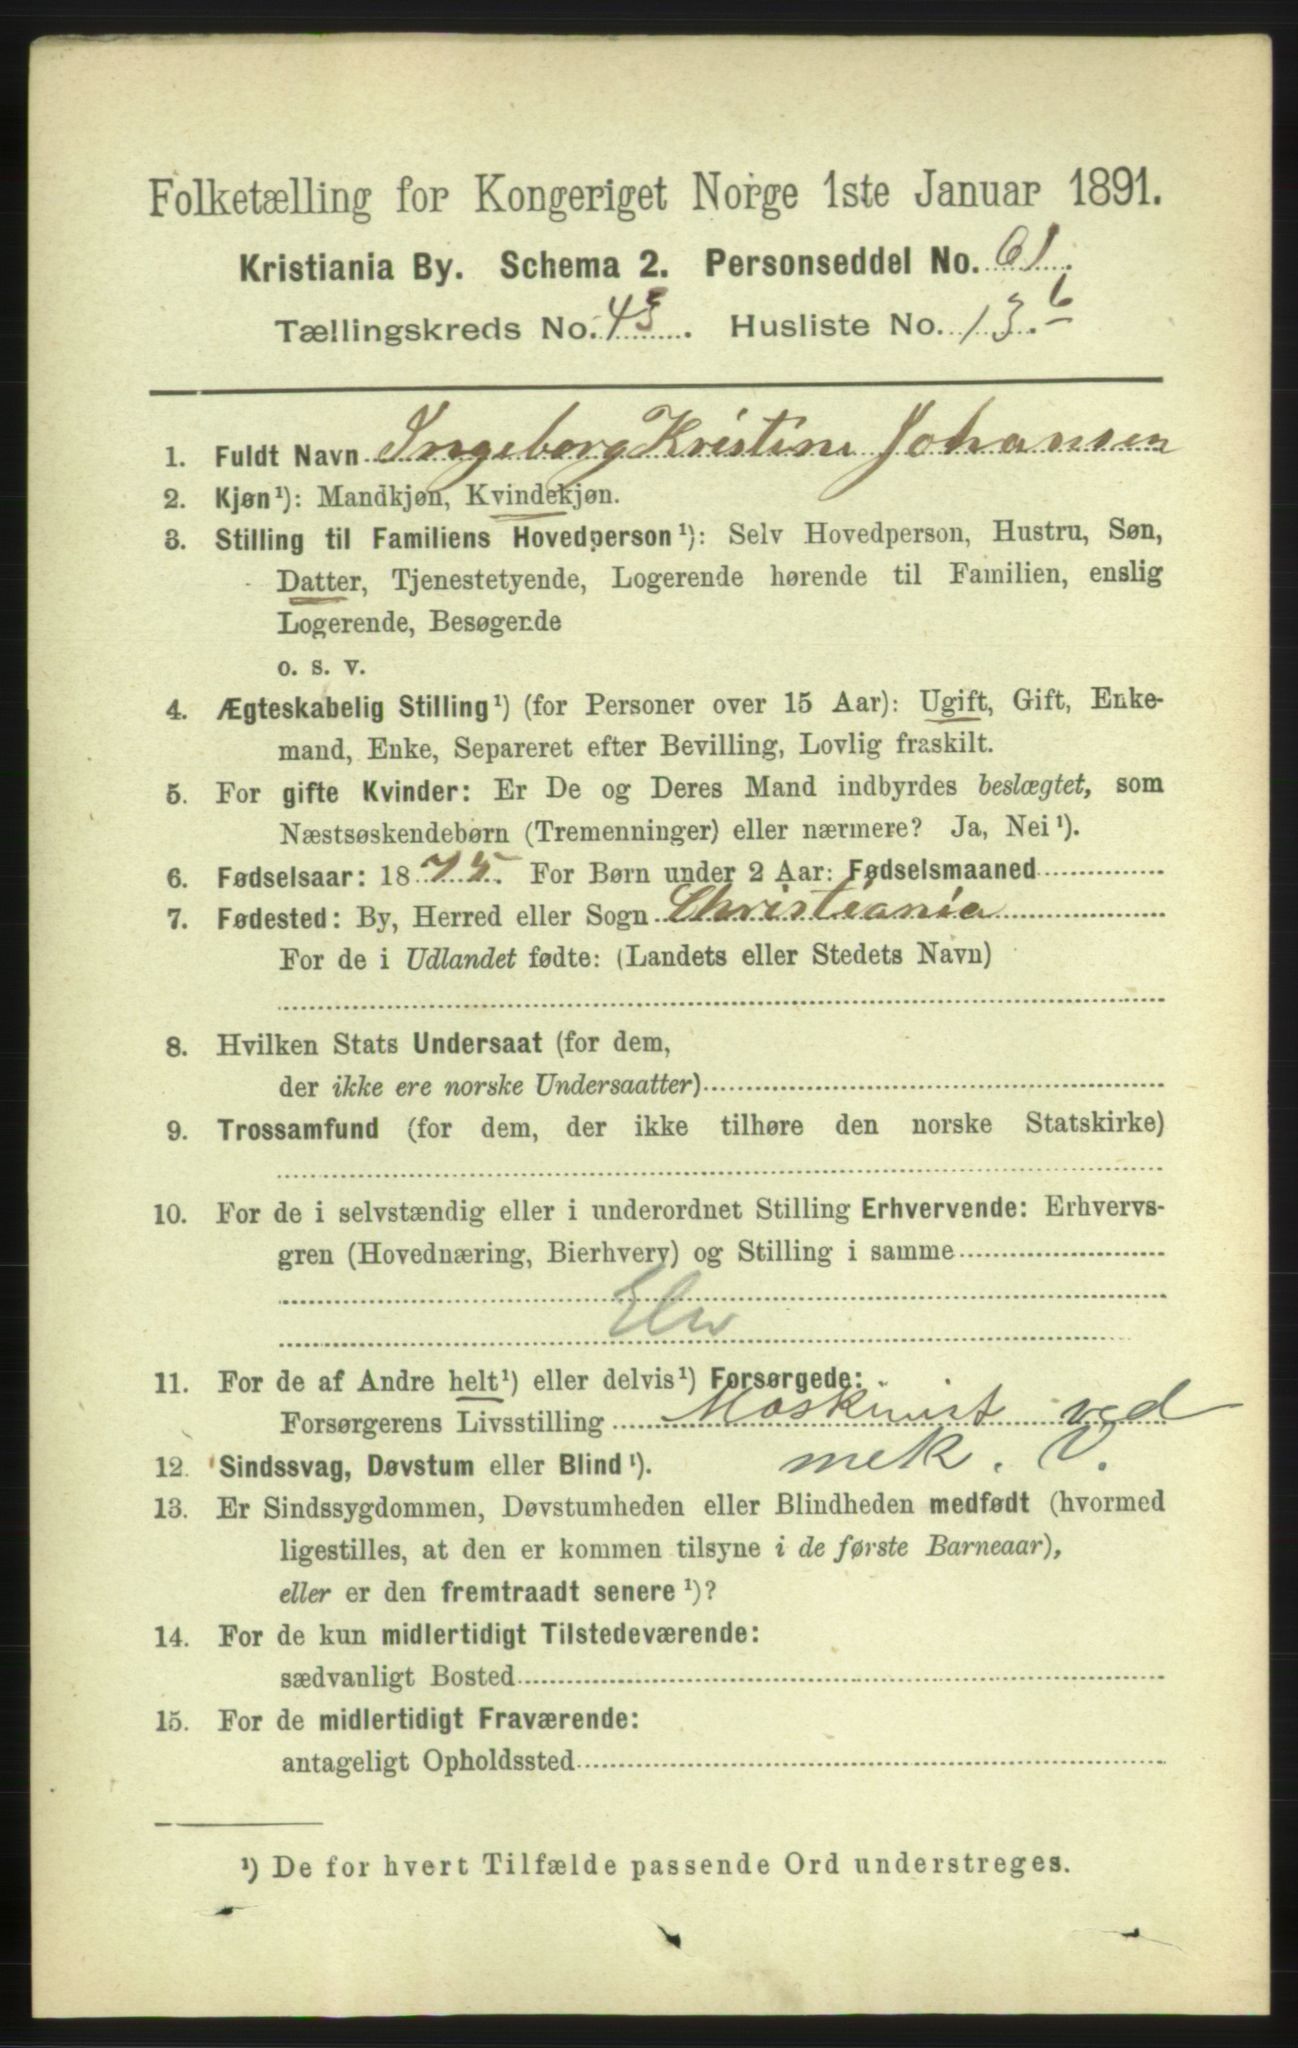 Folketælling for Kongeriget Norge 1ste Januar 1891.
Kristiania By. Schema 2. Personseddel No. 61.
Tællingskreds No. 43. Husliste No. 13. b
1. Fuldt Navn Ingeborg Kristine Johansen
2. Kjøn¹): Mandkjøn, Kvindekjøn.
3. Stilling til Familiens Hovedperson¹): Selv Hovedperson, Hustru, Søn,
Datter, Tjenestetyende, Logerende hørende til Familien, enslig
Logerende, Besøgende
o. s. v.
4. Ægteskabelig Stilling¹) (for Personer over 15 Aar): Ugift, Gift, Enke-
mand, Enke, Separeret efter Bevilling, Lovlig fraskilt.
5. For gifte Kvinder: Er De og Deres Mand indbyrdes beslægtet, som
Næstsøskendebørn (Tremenninger) eller nærmere? Ja, Nei¹).
6. Fødselsaar: 1875. For Børn under 2 Aar: Fødselsmaaned
7. Fødested: By, Herred eller Sogn Christiania
For de i Udlandet fødte: (Landets eller Stedets Navn)
8. Hvilken Stats Undersaat (for dem,
der ikke ere norske Undersaatter)
9. Trossamfund (for dem, der ikke tilhøre den norske Statskirke)
10. For de i selvstændig eller i underordnet Stilling Erhvervende: Erhvervs-
gren (Hovednæring, Bierhverv) og Stilling i samme
Elev
11. For de af Andre helt¹) eller delvis¹) Forsørgede:
Forsørgerens Livsstilling Maskinist ved
mek. V.
12. Sindssvag, Døvstum eller Blind¹).
13. Er Sindssygdommen, Døvstumheden eller Blindheden medfødt (hvormed
ligestilles, at den er kommen tilsyne i de første Barneaar),
eller er den fremtraadt senere¹)?
14. For de kun midlertidigt Tilstedeværende:
sædvanligt Bosted
15. For de midlertidigt Fraværende:
antageligt Opholdssted
¹) De for hvert Tilfælde passende Ord understreges.